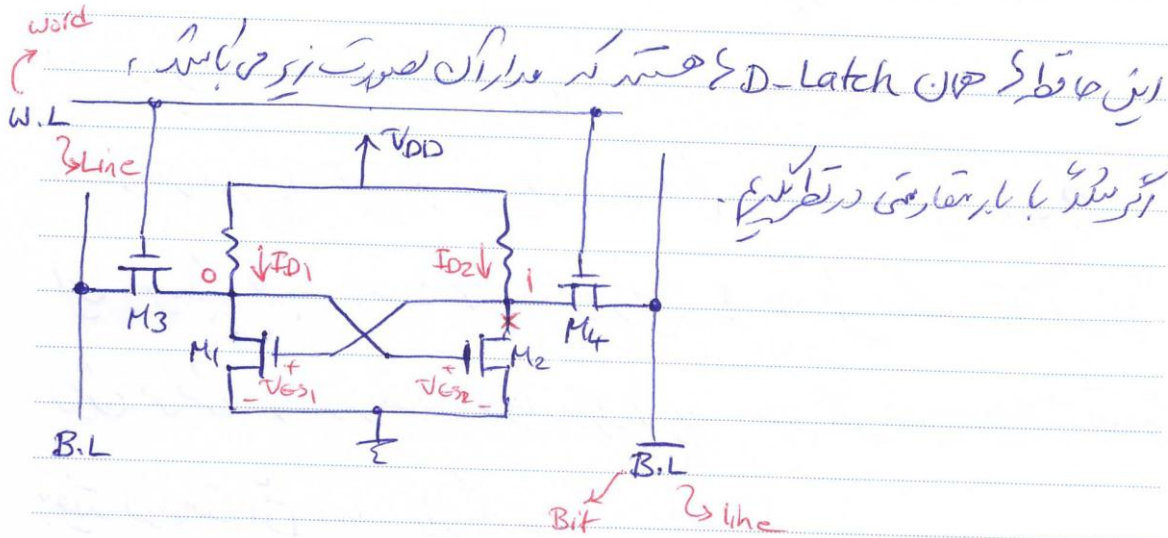 این حافظه‌ها همان D-Latch ها هستند که مدار آن بصورت زیر می باشد،
word
W.L
Line
VDD
اگر سلف را با بار مقاومتی در نظر بگیریم.
0 ↓ID1 ID2↓ 1
M3 M4
M1 M2
+ VGS1 - + VGS2 -
B.L B.L
Bit Line